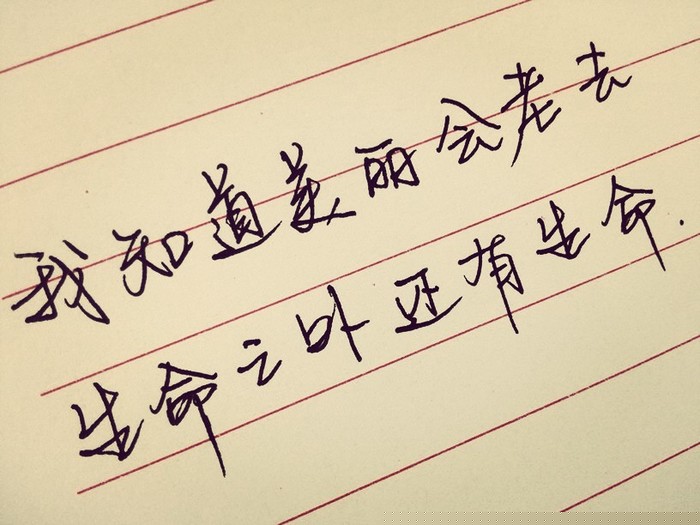 我知道美丽会老去
生命之外还有生命.